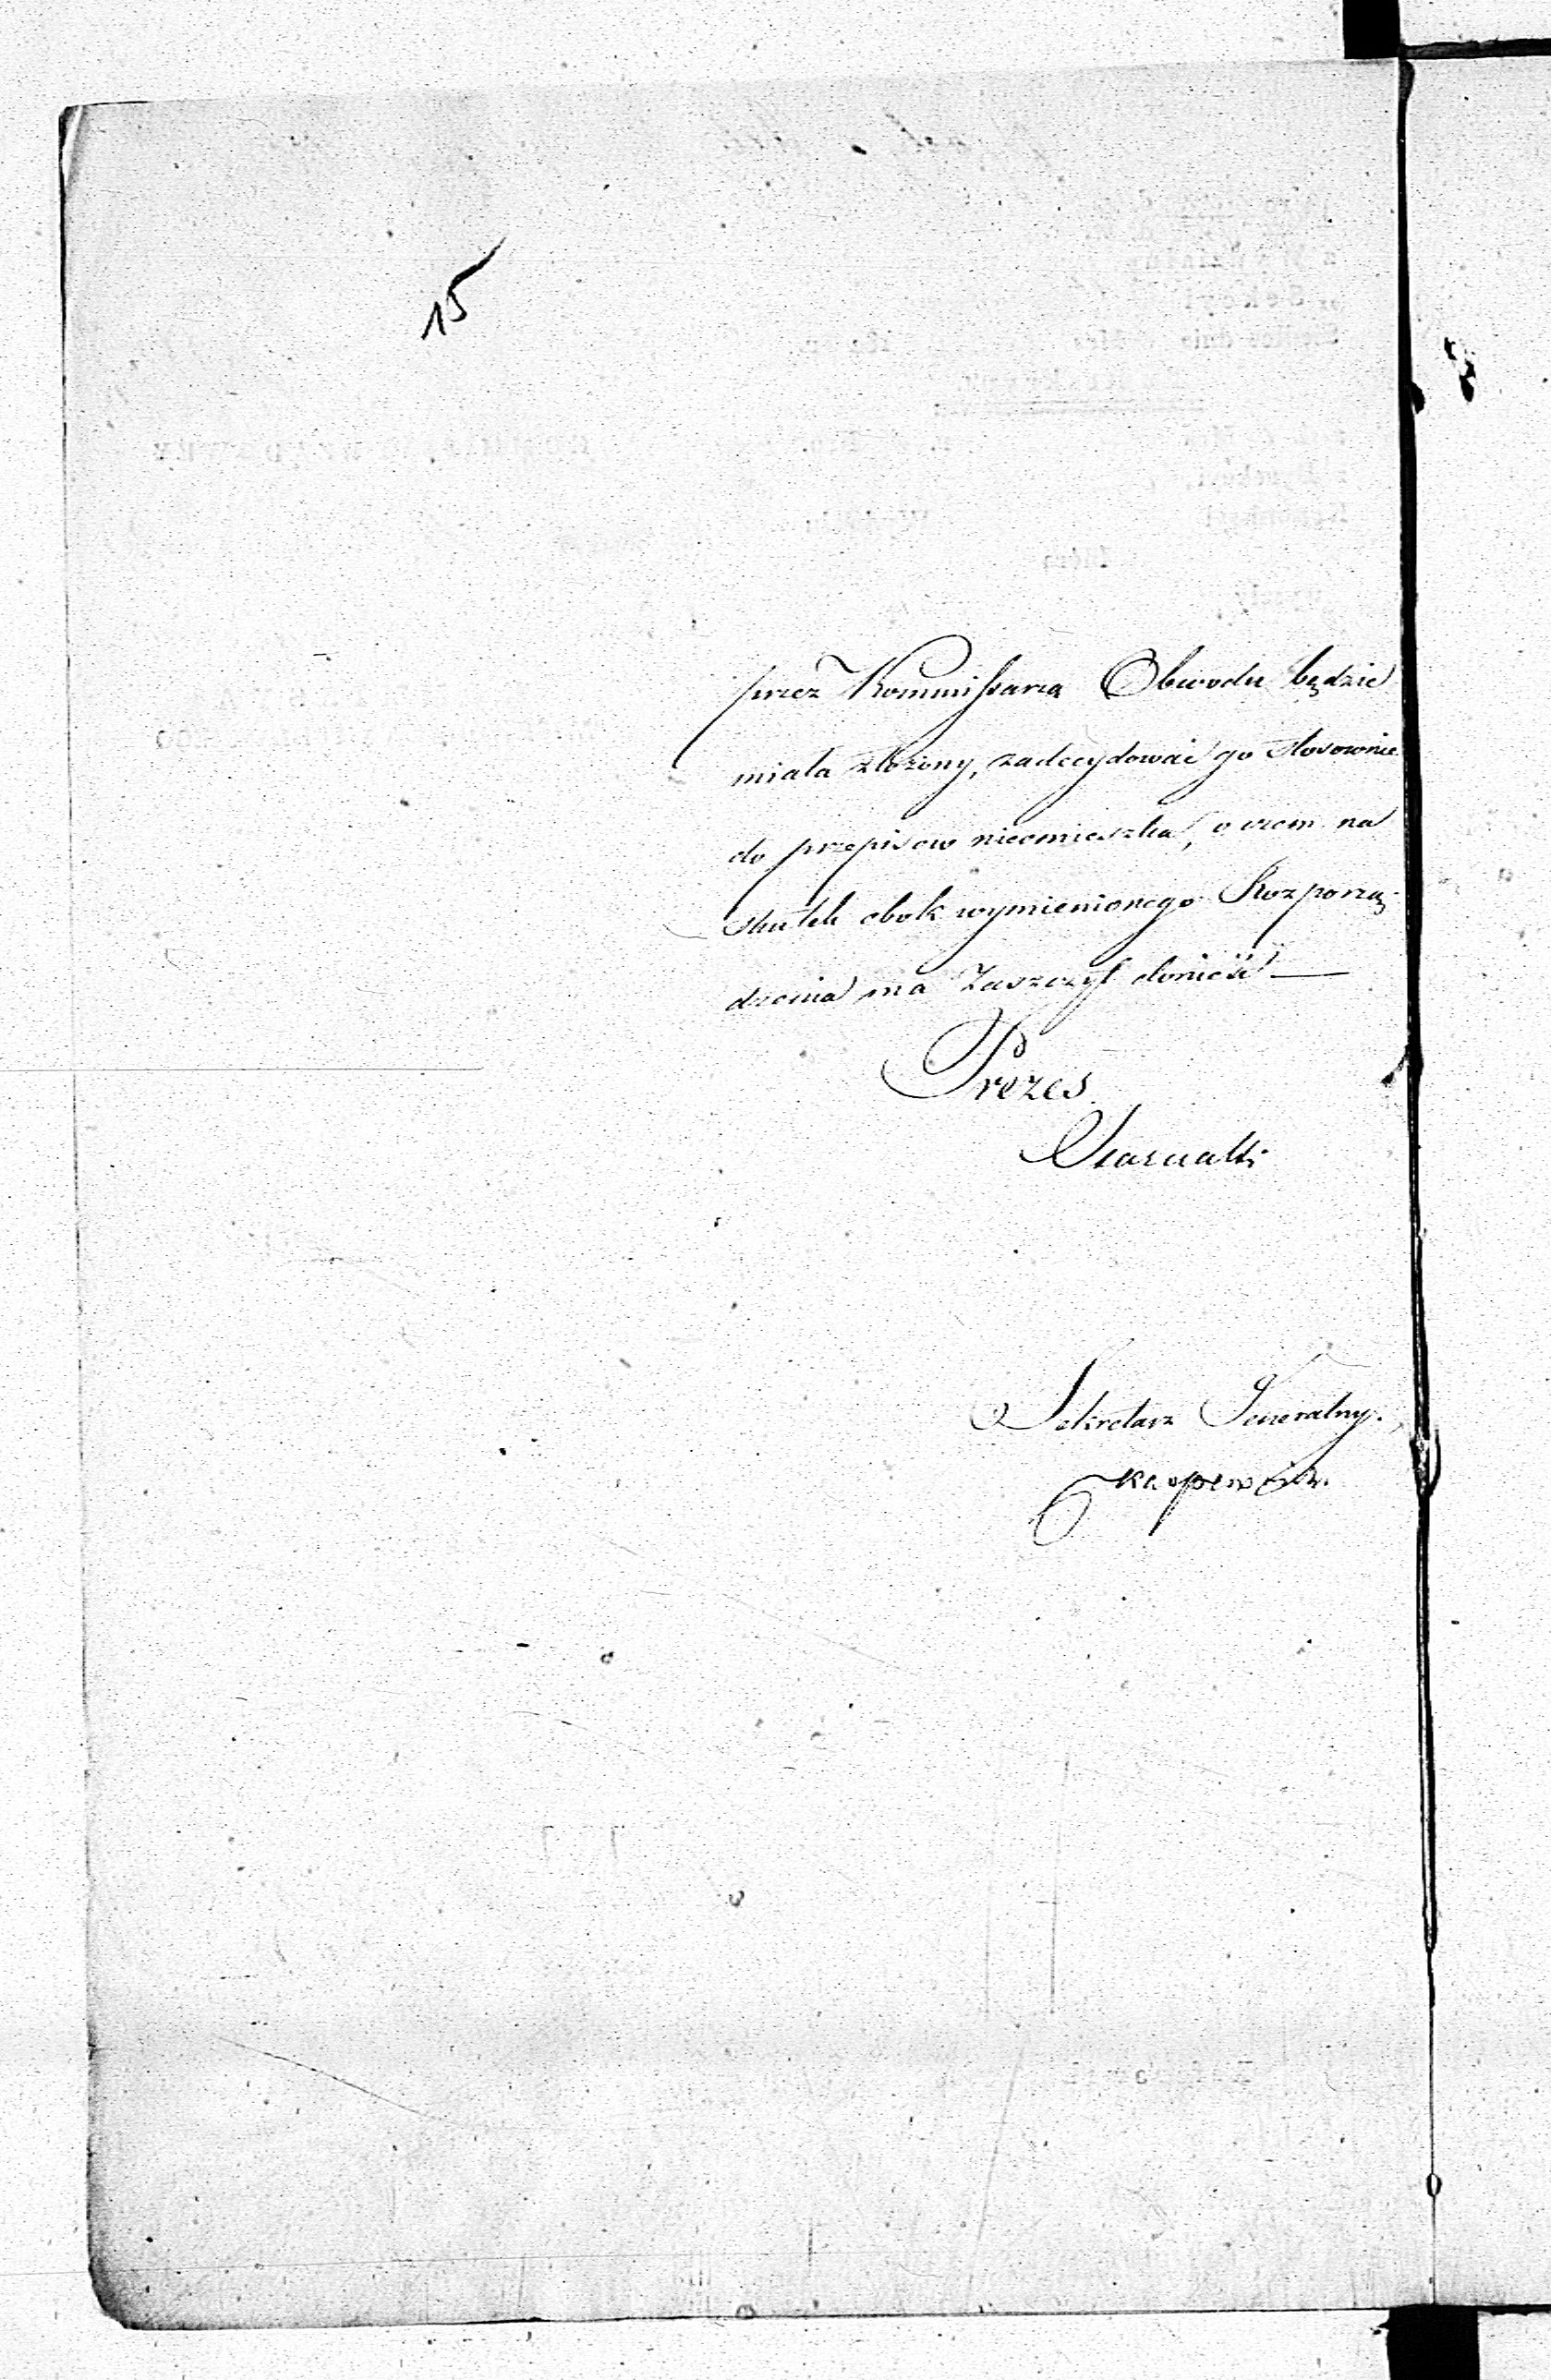 15
przez Kommissarza Obwodu będzie
miała złożony, zadecydować go stosownie
do przepisow nieomieszka, o czem na
skutek obok wymienionego Rozporzą-
dzenia ma Zaszczyt donieść —
Prezes
Sekretarz Generalny.